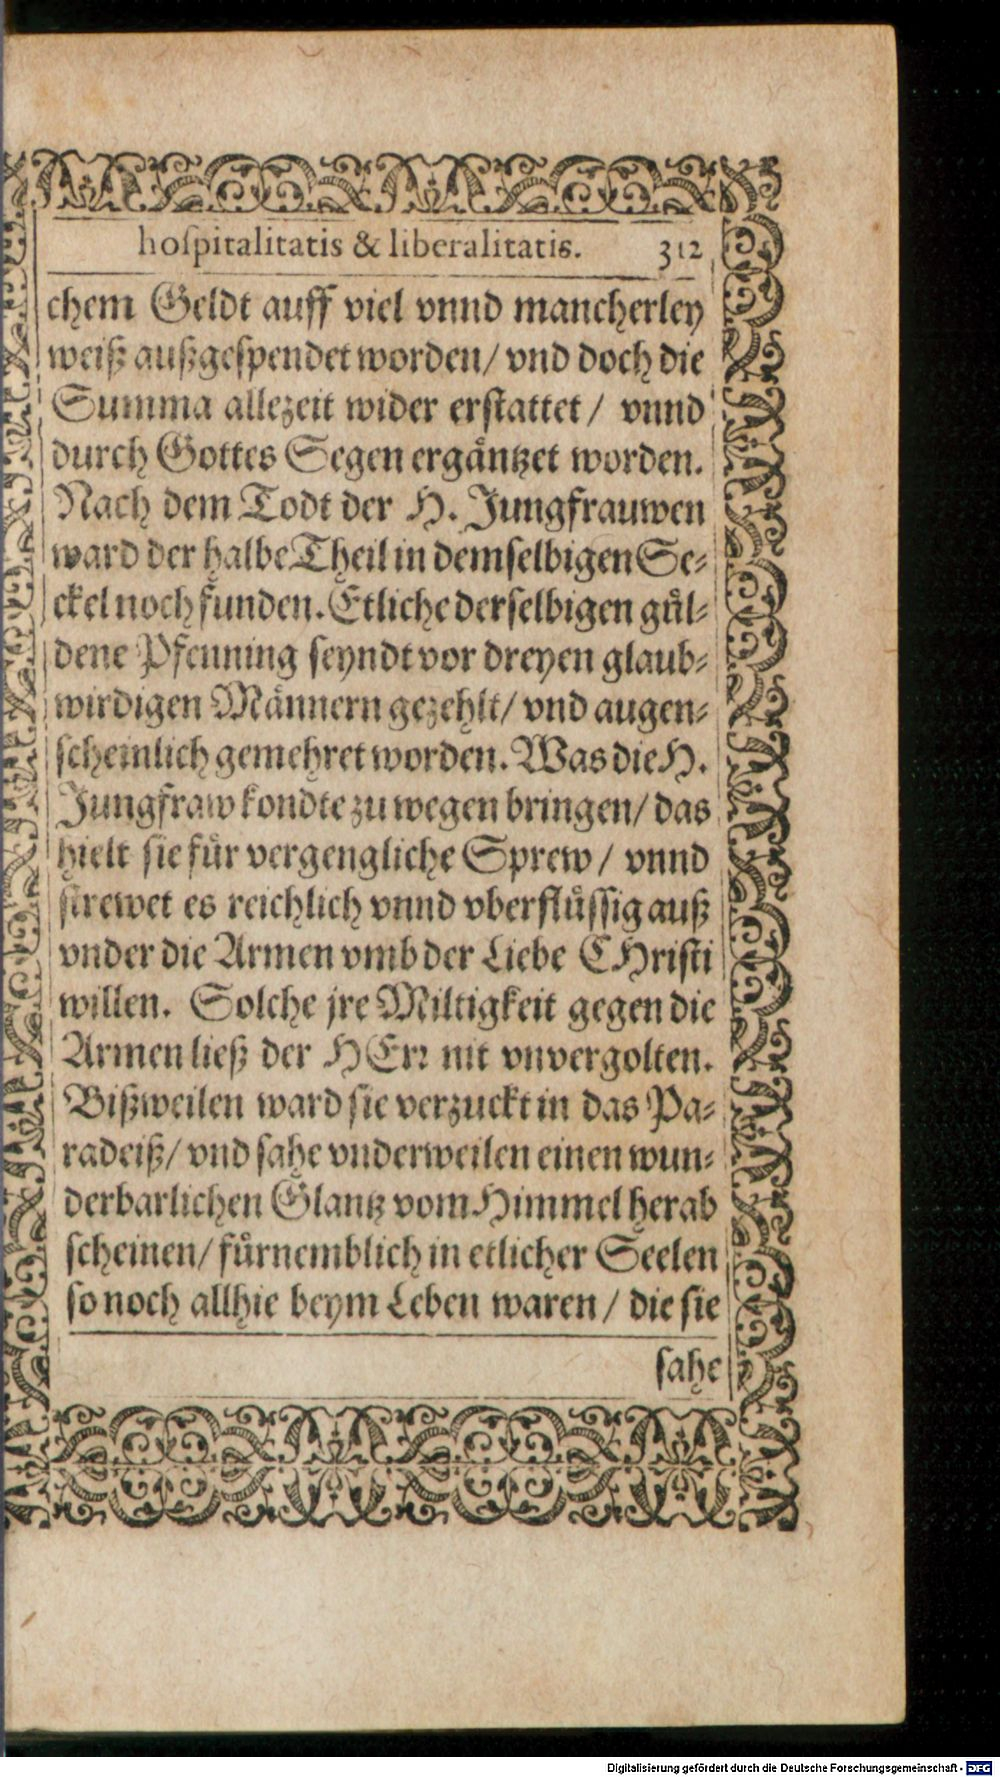 hoſpitalitatis & liberalitatis. 312
chem Geldt auff viel vnnd mancherley
weiß außgeſpendet worden/ vnd doch die
Summa allezeit wider erſtattet / vnnd
durch Gottes Segen ergäntzet worden.
Nach dem Todt der H. Jungfrauwen
ward der halbe Theil in demſelbigen Se-
ckel noch funden. Etliche derſelbigen gül-
dene Pfenning ſeyndt vor dreyen glaub-
wirdigen Männern gezehlt/ vnd augen-
ſcheinlich gemehret worden. Was die H.
Jungfraw kondte zu wegen bringen/ das
hielt ſie für vergengliche Sprew / vnnd
ſtrewet es reichlich vnnd vberflüſſig auß
vnder die Armen vmb der Liebe CHriſti
willen. Solche jre Miltigkeit gegen die
Armen ließ der HErꝛ nit vnvergolten.
Bißweilen ward ſie verzuckt in das Pa-
radeiß/ vnd ſahe vnderweilen einen wun-
derbarlichen Glantz vom Himmel herab
ſcheinen/ fürnemblich in etlicher Seelen
ſo noch allhie beym Leben waren / die ſie
ſahe
Digitalisierung gefördert durch die Deutsche Forschungsgemeinschaft - DFG